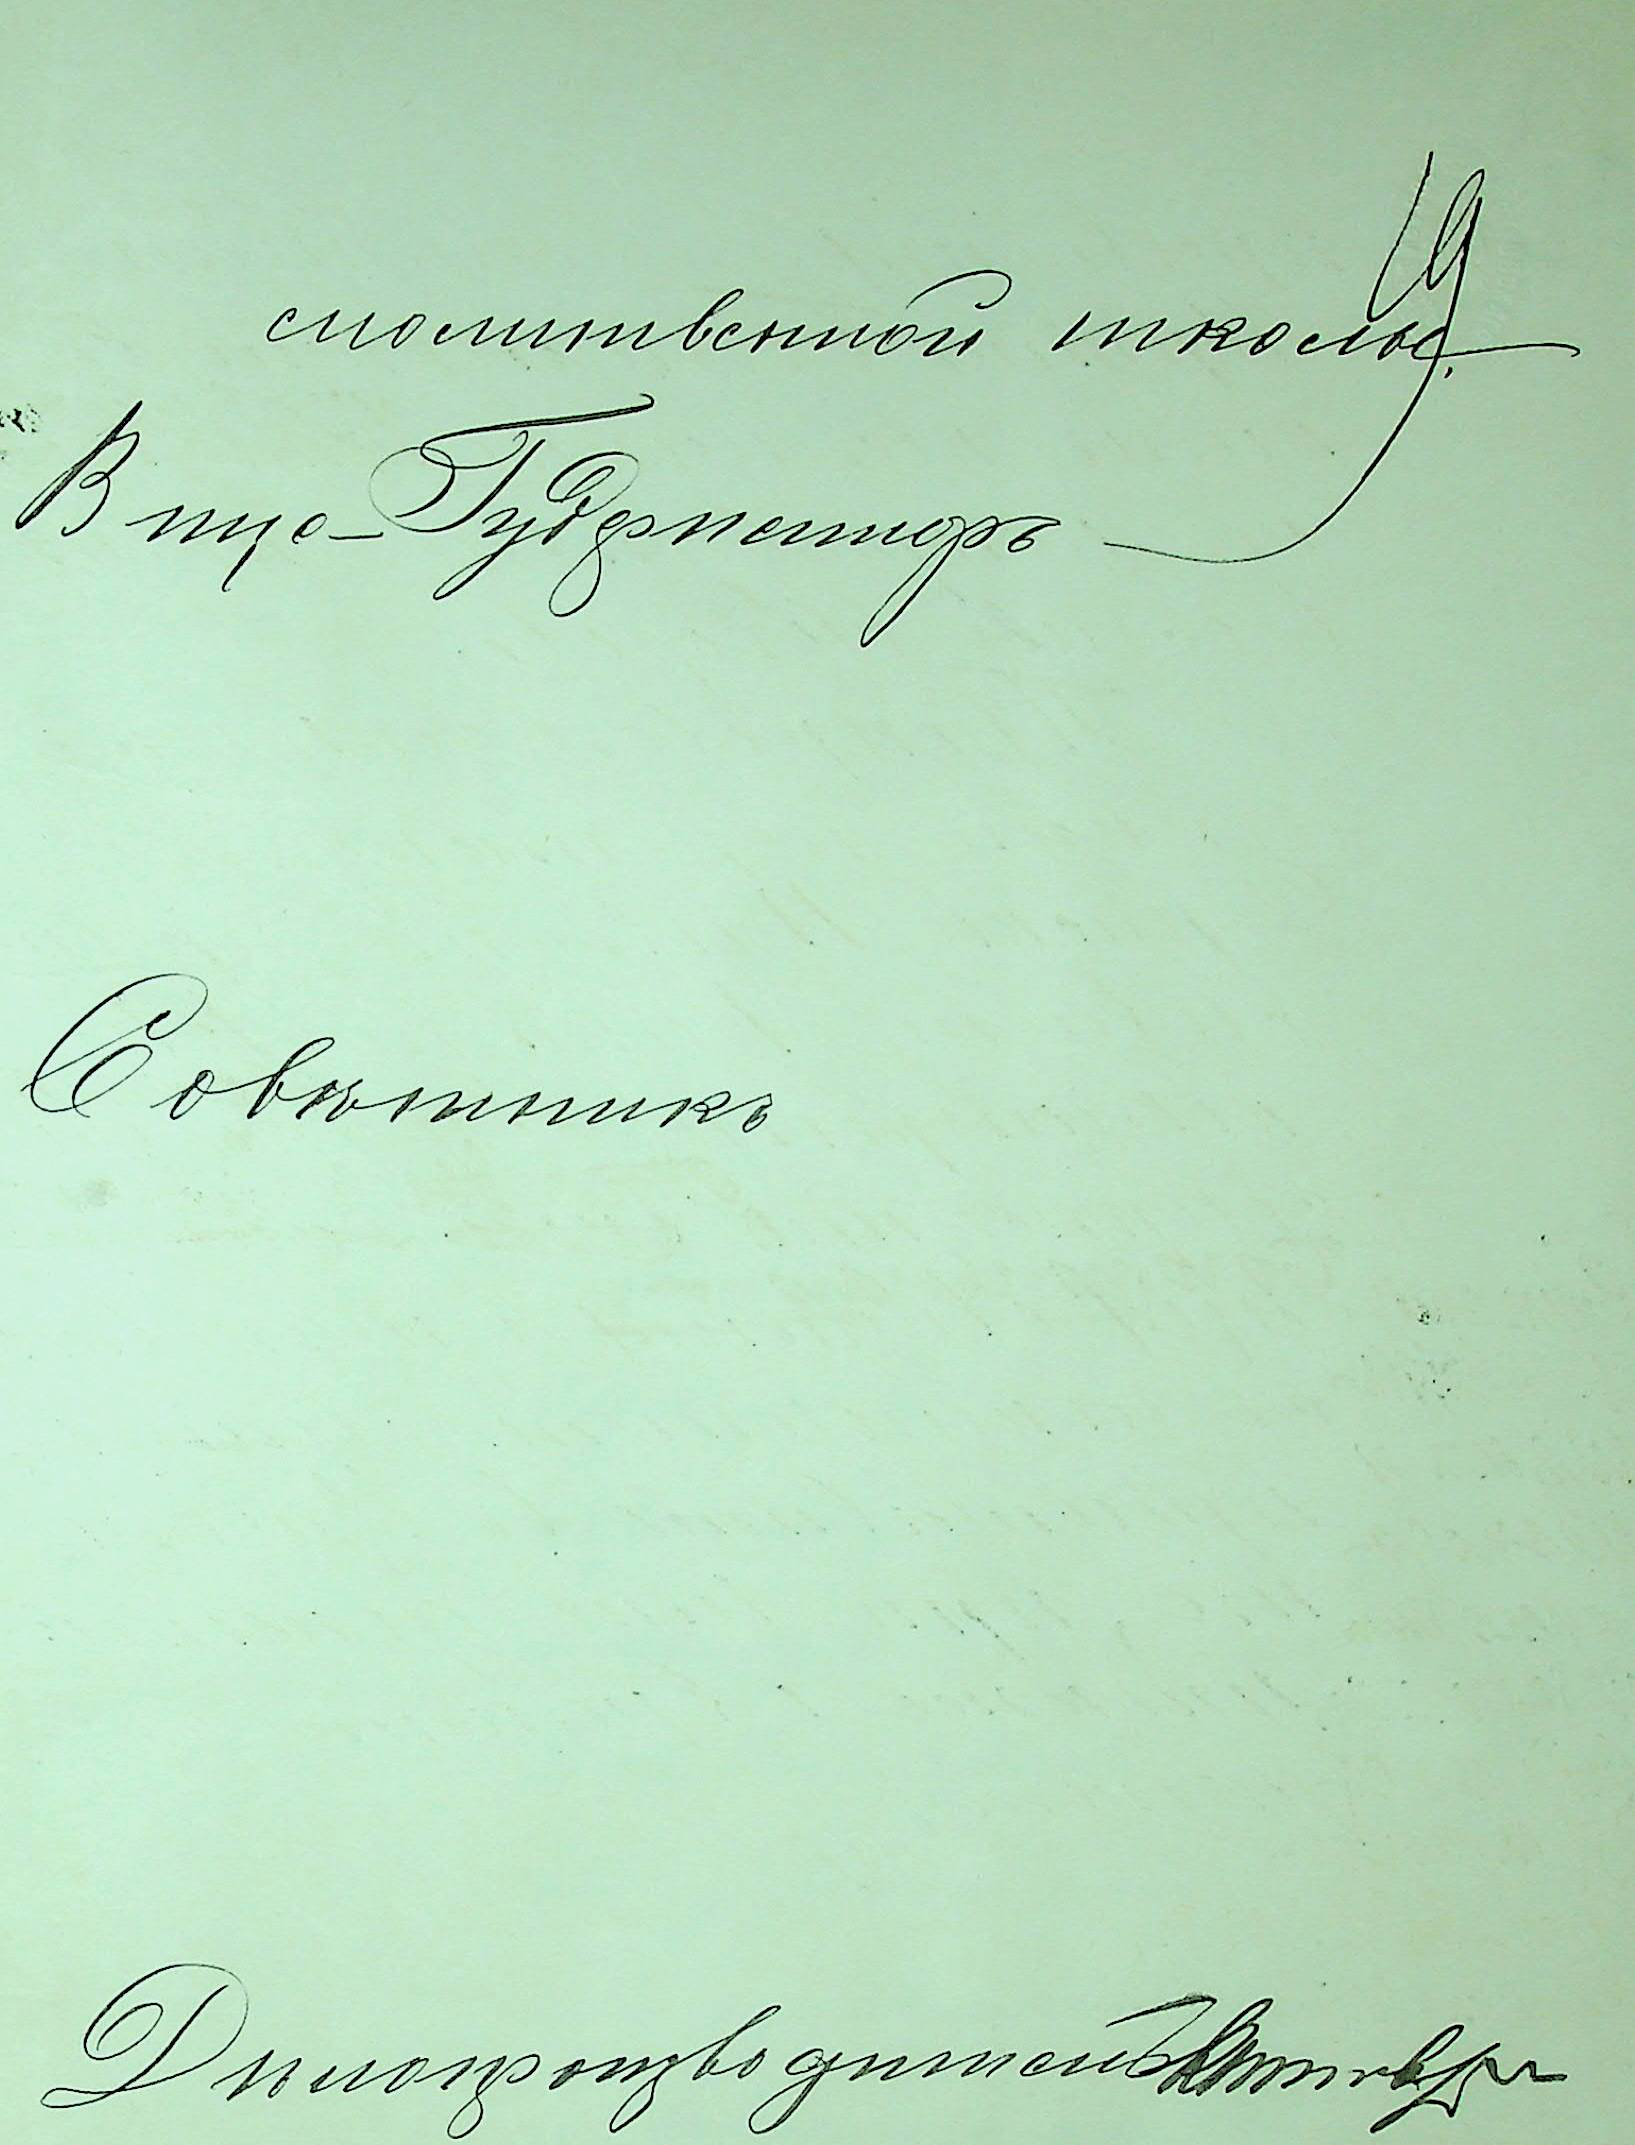 молитвенной школы.
Вице-Губернаторъ
Совѣтникъ
Дѣлопроизводитель